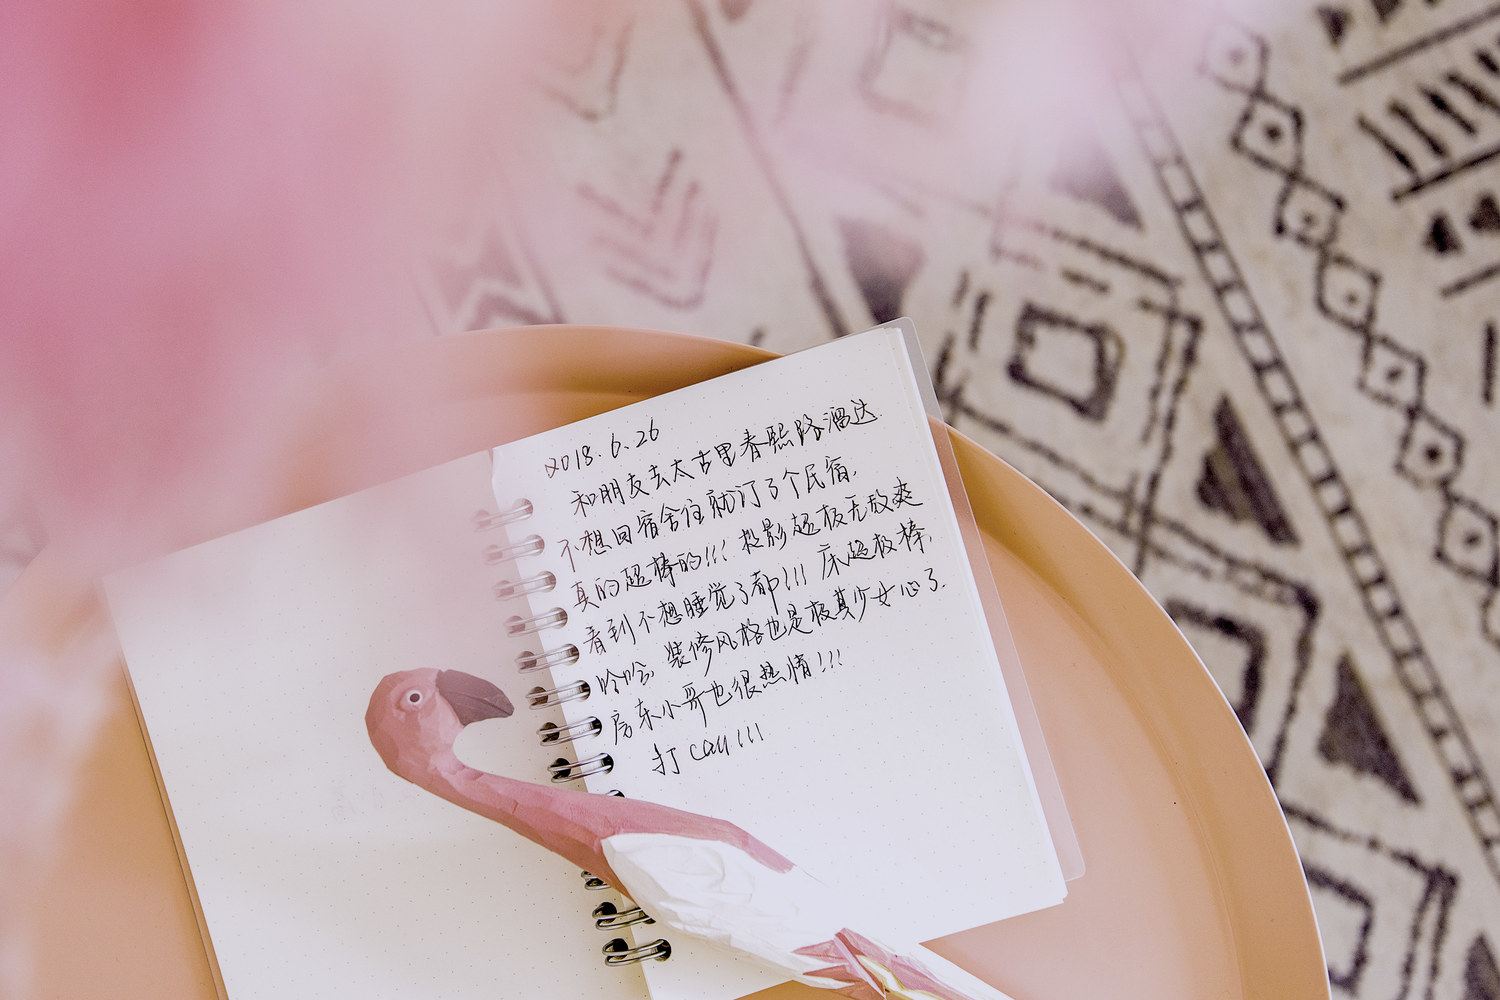 2018.6.26
和朋友去太古里春熙路溜达
不想回宿舍住就订了个民宿,
真的超棒的!!! 投影超极无敌爽
看到不想睡觉了都!!! 床超极棒,
哈哈, 装修风格也是极其少女心了.
房东小哥也很热情!!!
打call!!!